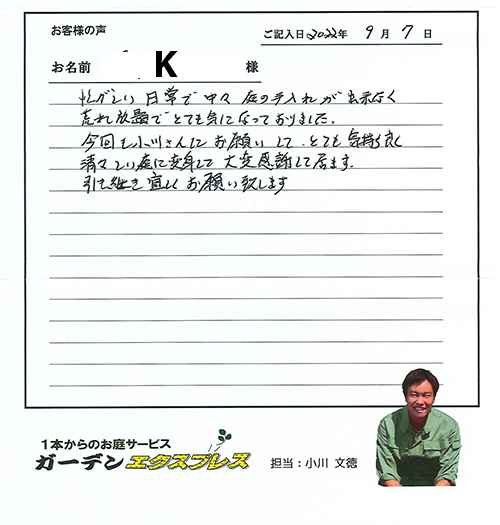 お客様の声
ご記入日2022年 9月 7日
お名前 K 様
忙がしい日常で中々庭の手入れが出来なく
荒れ放題でとても気になっておりました。
今回も小川さんにお願いして、とても気持ち良く
清々しい庭に変身して大変感謝して居ます。
引き続き宜しくお願い致します
1本からのお庭サービス
ガーデンエクスプレス
担当：小川 文徳